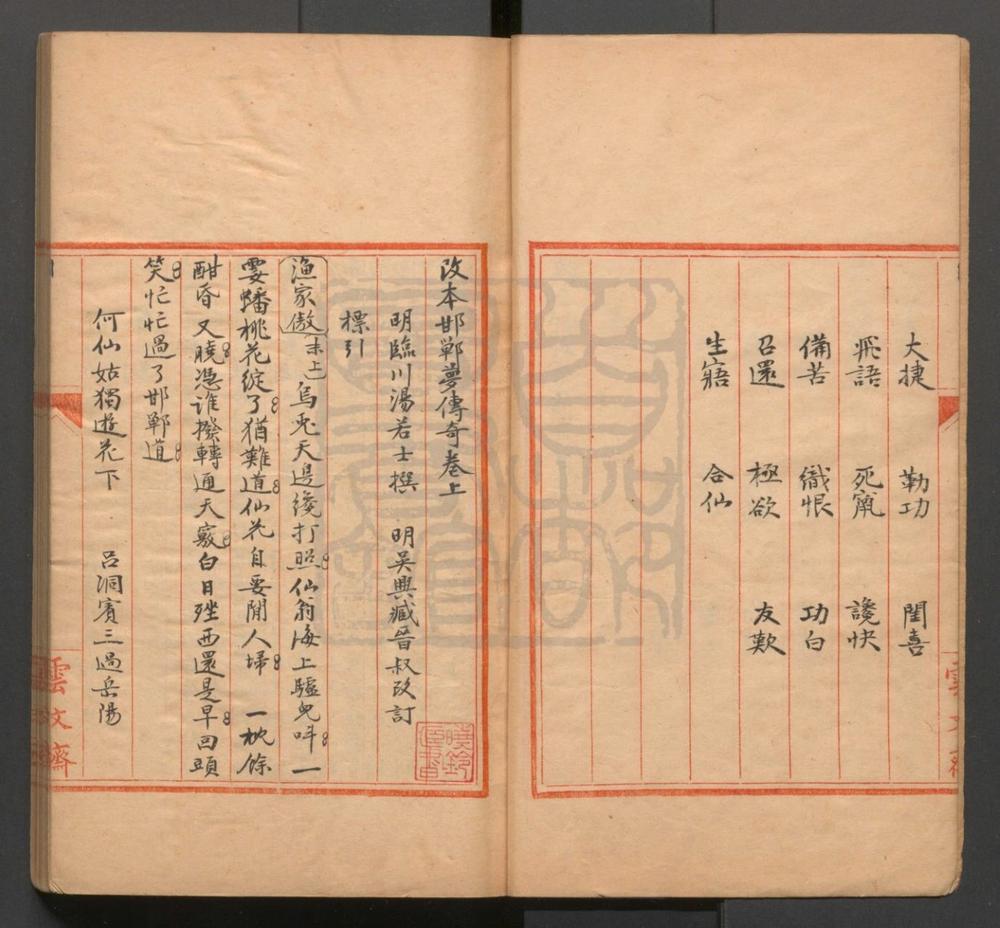 大捷 勒功 閨喜
飛語 死竄 讒快
備苦 織恨 功白
召還 極欲 友歎
生寤 合仙
改本邯鄲夢傳奇卷上
明臨川湯若士撰 明吳興臧晉叔改訂
標引
漁家傲 末上 烏兎天邊纔打照仙翁海上驢皃呌一
霎蟠桃花綻了猶難道仙花自要閒人埽 一枕餘
酣昏又曉憑誰撥轉通天竅白日矬西還是早回頭
笑忙忙過了邯鄲道
何仙姑獨遊花下 呂洞賓三過岳陽
雲文齋